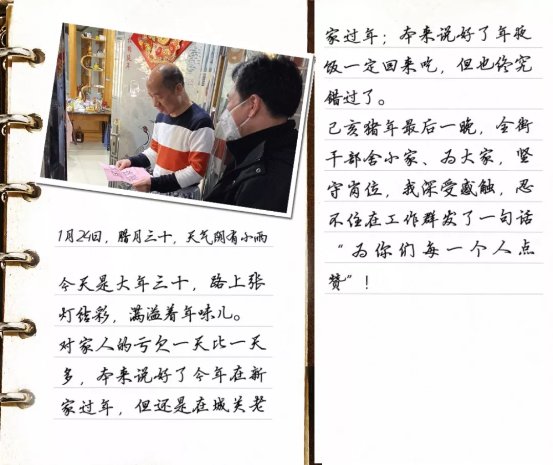 1月24日，腊月三十，天气阴有小雨
今天是大年三十，路上张
灯结彩，满溢着年味儿。
对家人的亏欠一天比一天
多，本来说好了今年在新
家过年，但还是在城关老
家过年；本来说好了年夜
饭一定回来吃，但也终究
错过了。
己亥猪年最后一晚，全街
干部舍小家、为大家，坚
守岗位，我深受感触，忍
不住在工作群发了一句话
“为你们每一个人点
赞”！